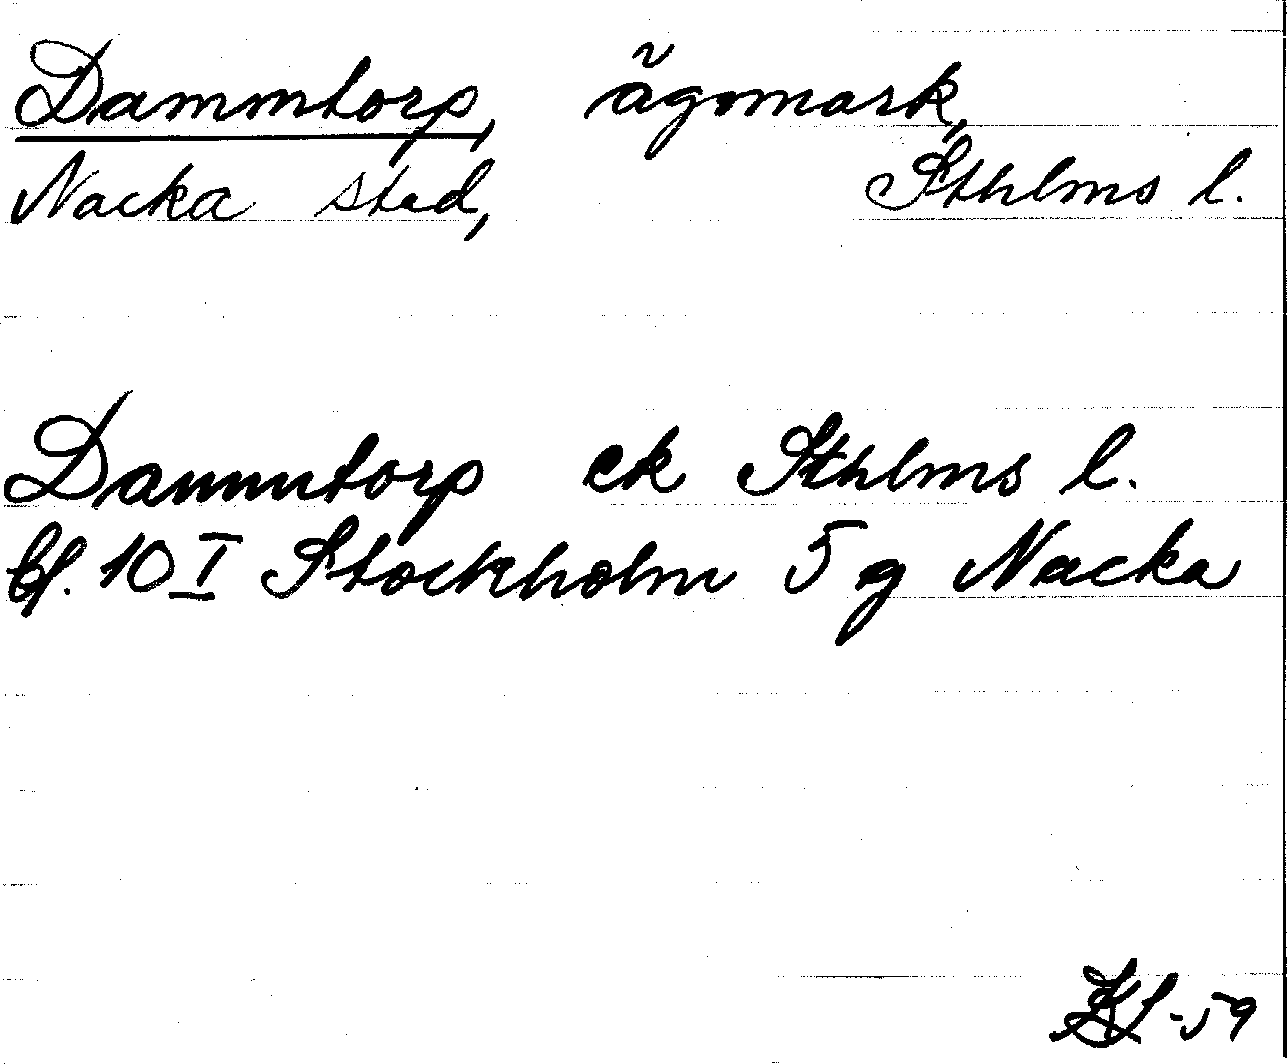 Dammtorp, ägomark,
Nacka stad, Sthlms l.
Dammtorp ek Sthlms l.
bl. 10 I Stockholm 5 g Nacka
-59